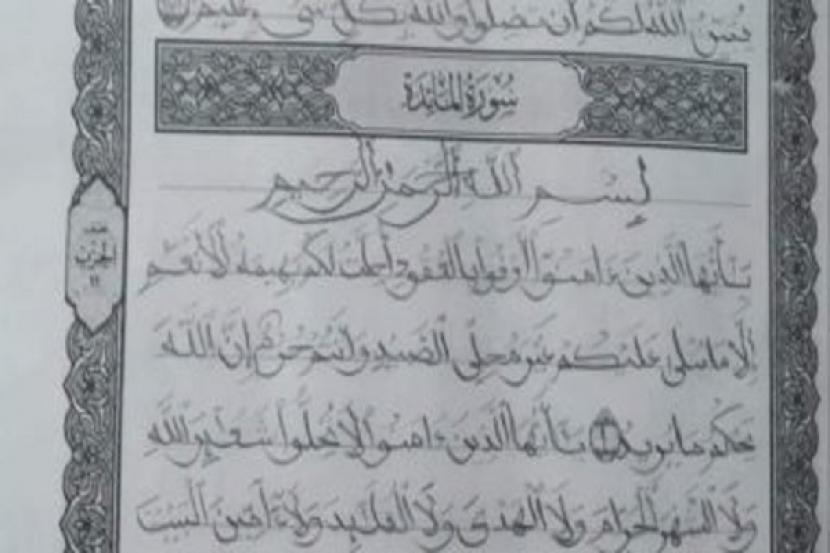 يبين الله لكم أن تضلوا والله بكل شىء عليم
سُورَةُ المَائِدَة
بِسْمِ اللَّهِ الرَّحْمَٰنِ الرَّحِيمِ
يَٰأيها الذين ءامنوا أوفوا بالعقود أحلت لكم بهيمة الأنعم
إلا ما يتلى عليكم غير محلى الصيد وأنتم حرم إنَّ اللَّه
يحكم ما يريد ١ يَٰأيها الذين ءامنوا لا تحلوا شعَٰئر الله
ولا الشهر الحرام ولا الهدى ولا القلَٰئد ولا ءامين البيت
الحزب
١١